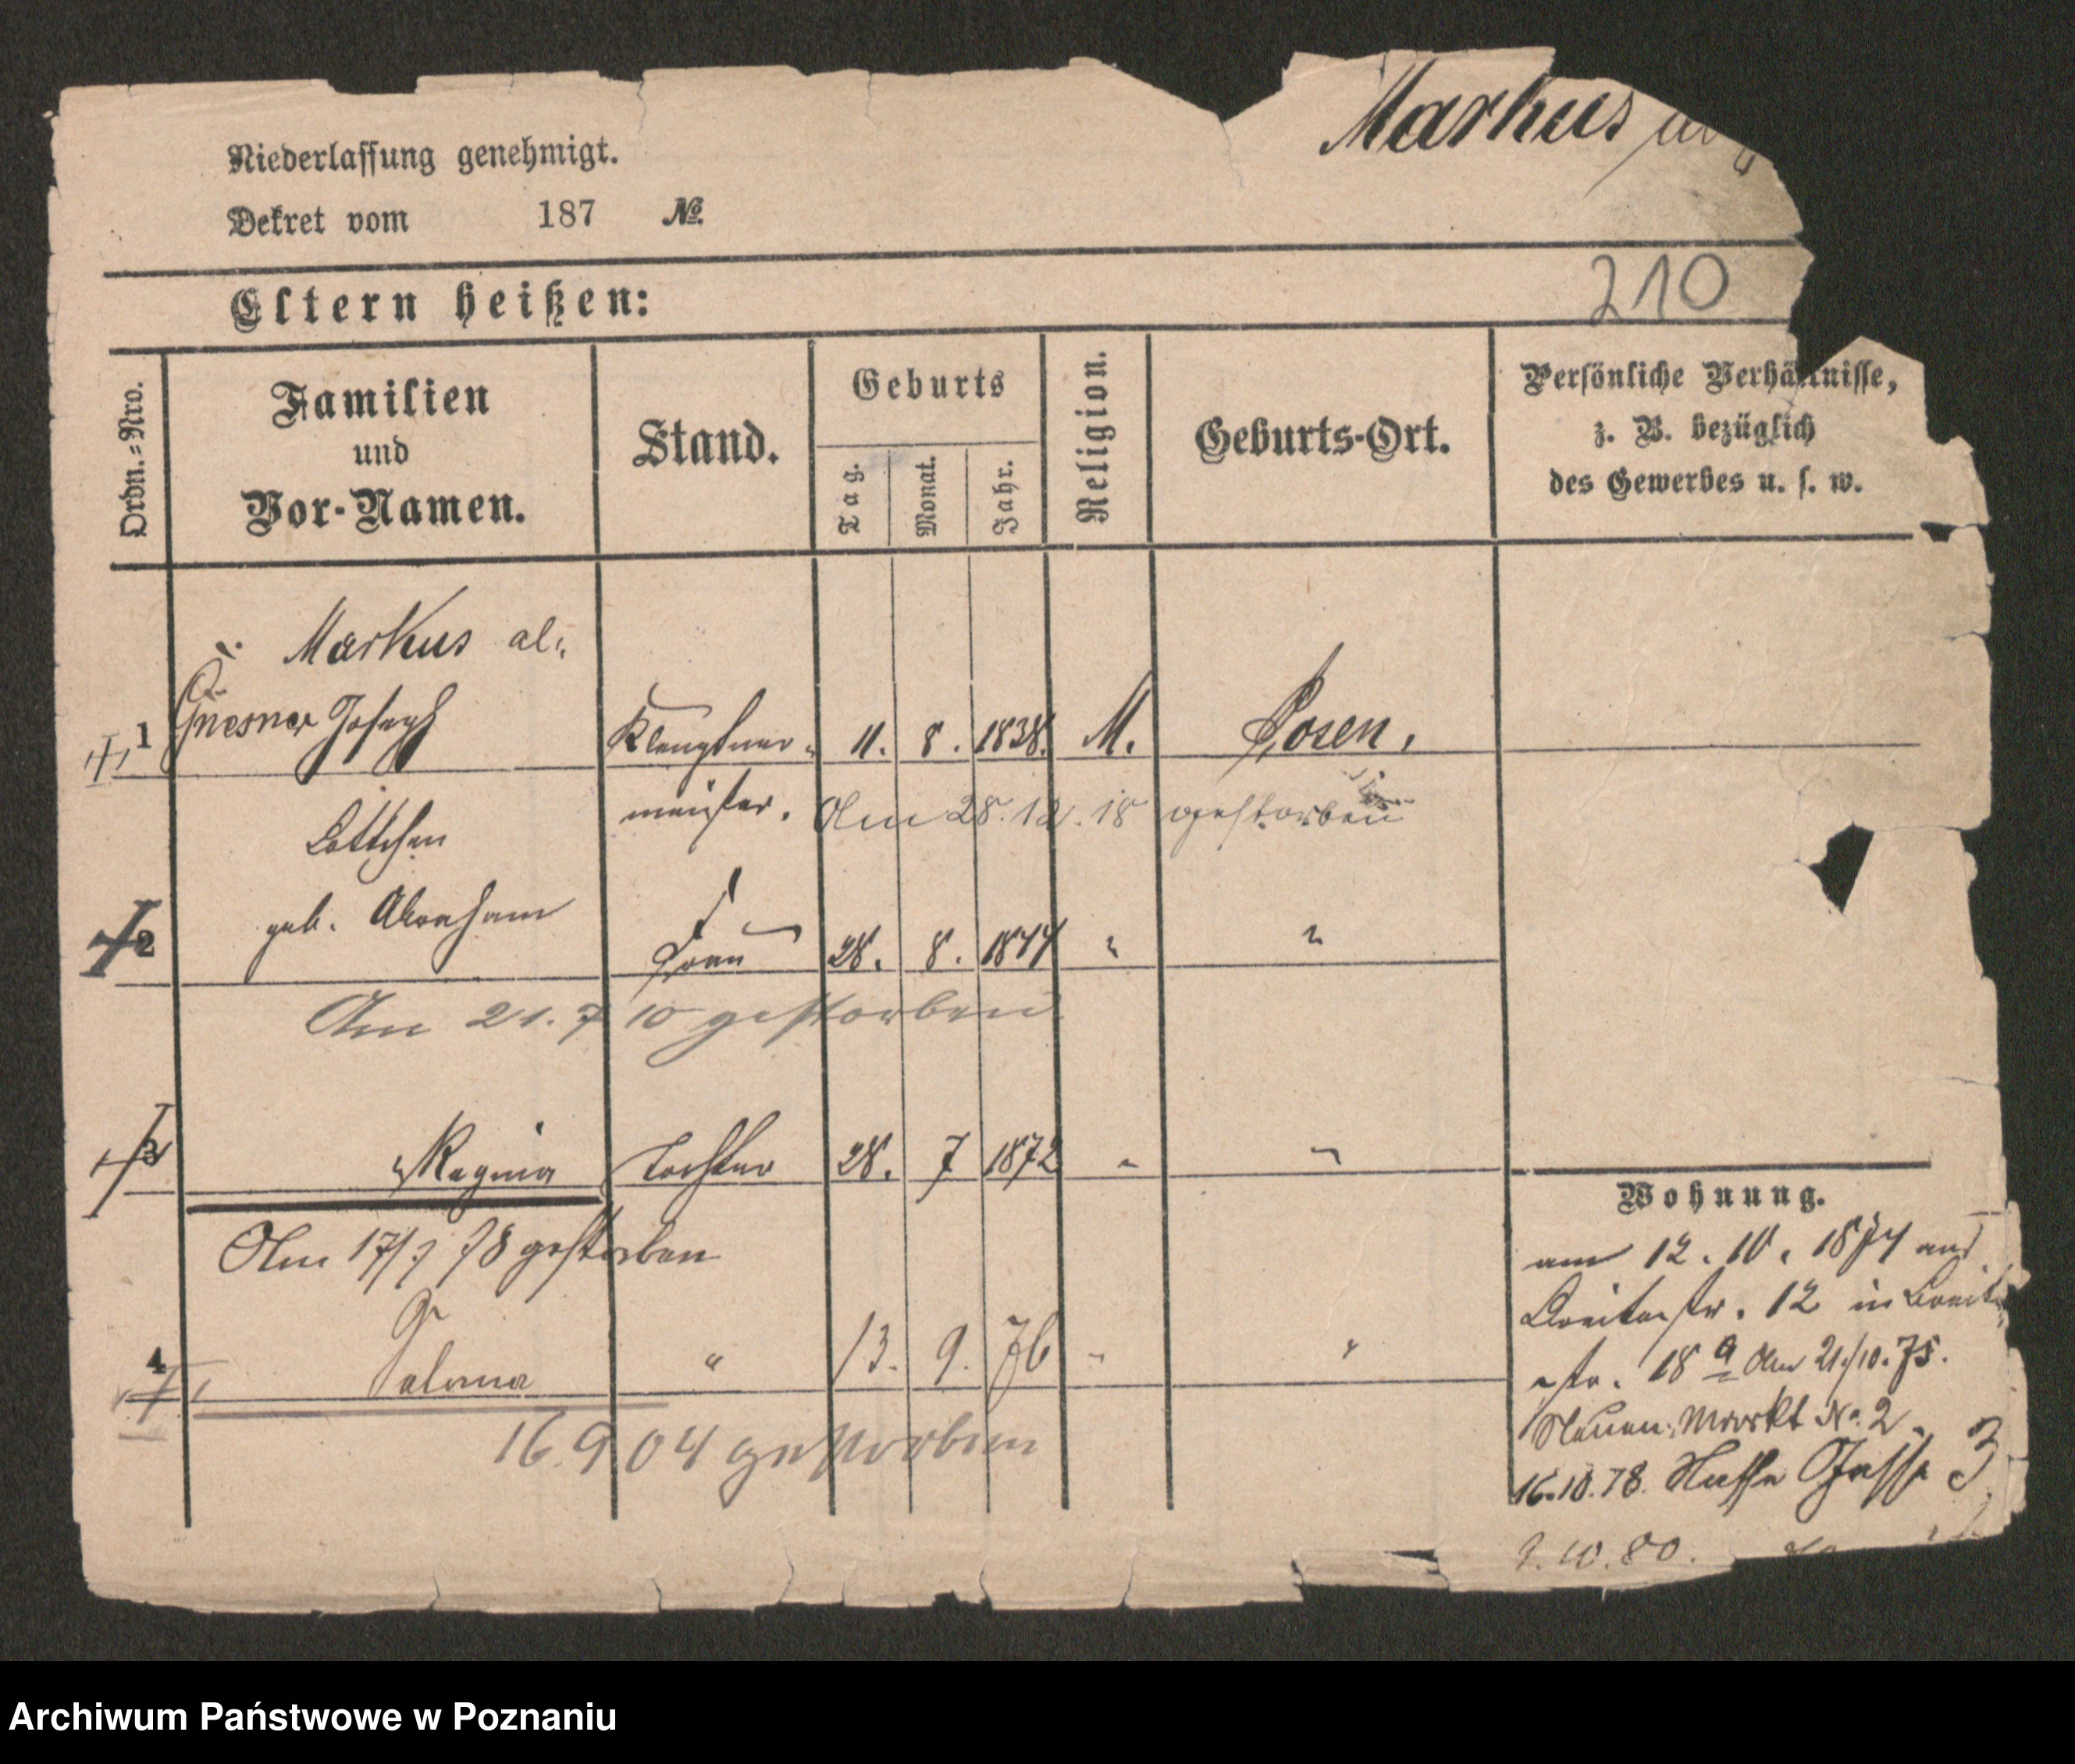 Markus
Niederlassung genehmigt.
Dekret vom 187 №.
210
Eltern heißen:
Ordn.-Nro.
Familien
und
Vor-Namen.
Stand.
Geburts
Tag.
Monat.
Jahr.
Religion.
Geburts-Ort.
Persönliche Verhältnisse,
z. B. bezüglich
des Gewerbes u. s. w.
Markus al.
1 Gnesner Joseph Klempner- 11. 8. 1838. M. Posen.
meister. Am 28.12.18 gestorben
Lottchen
geb. Abraham
2 Frau 28. 8. 1844 " "
Am 21.7 10 gestorben
3 Regina Tochter 28. 7 1872 " "
Am 17/7 78 gestorben
4 Salomea " 13. 9. 76 " "
16.9 04 gestorben
Wohnung.
am 12. 10. 1874 aus
Breitestr. 12 in Breite
str. 18 a Am 21/10.75.
Neuen Markt No. 2
16.10.78. Nasse Gasse 3
9.10.80.
Archiwum Państwowe w Poznaniu